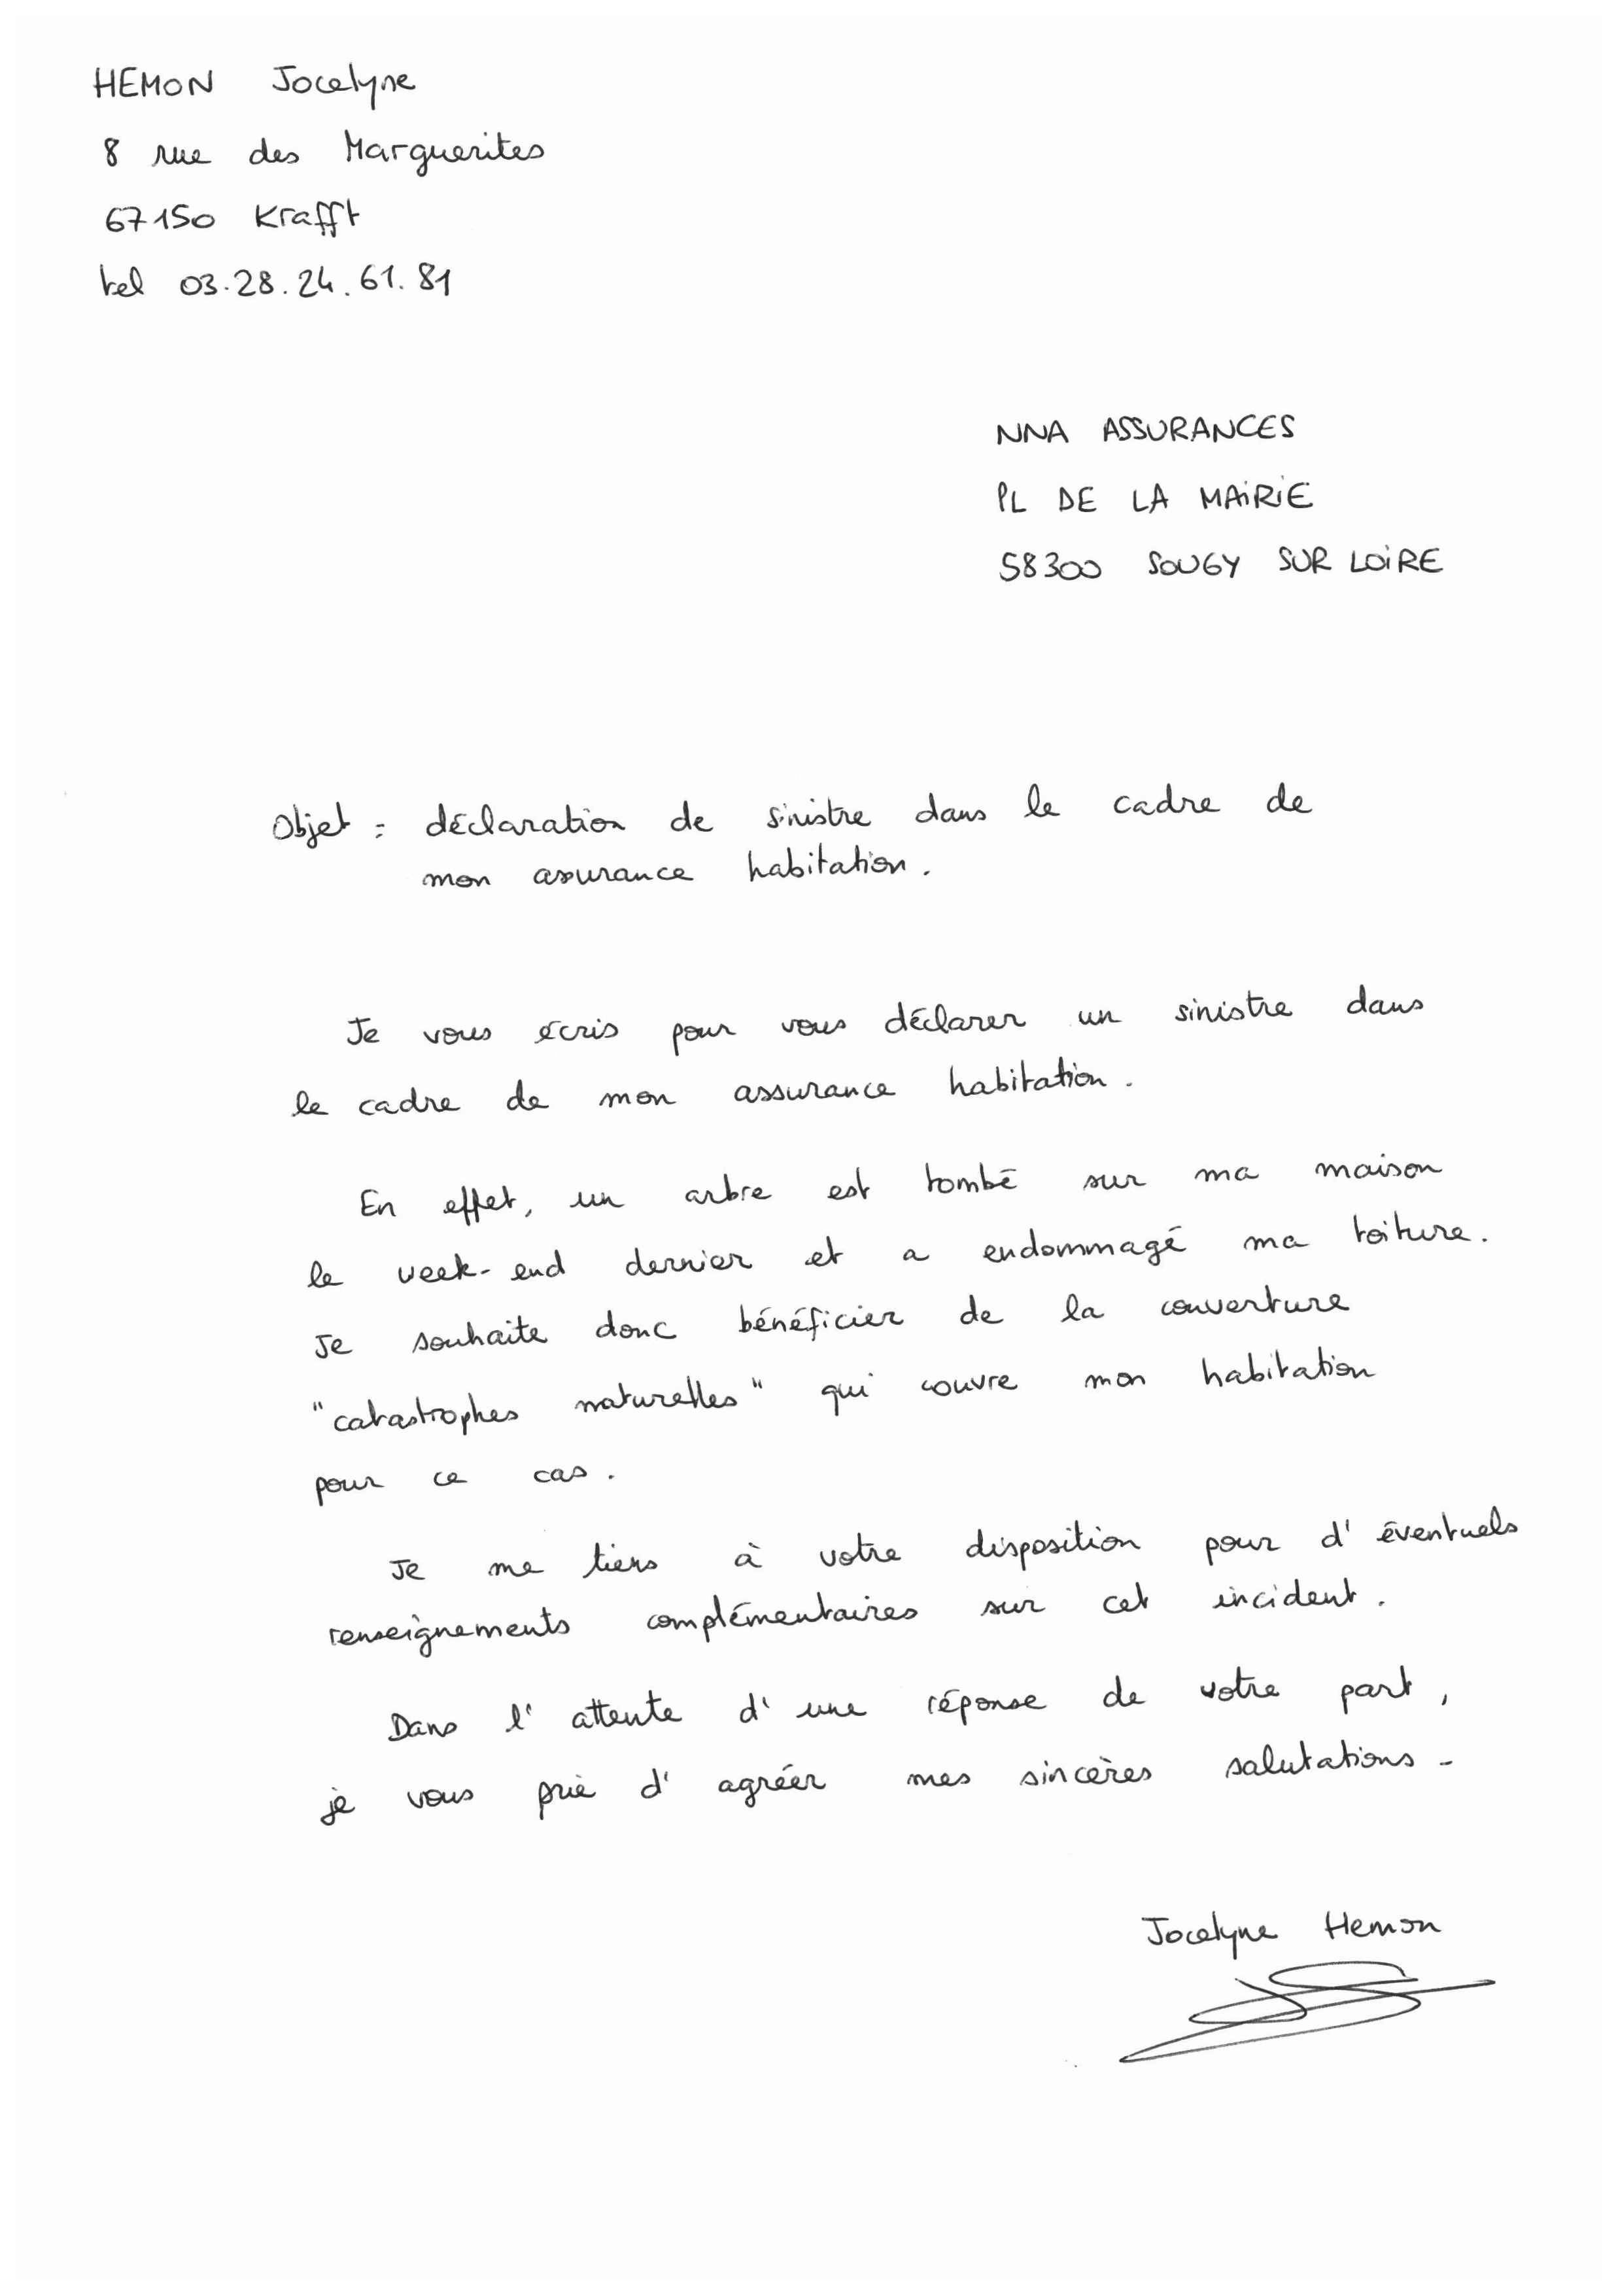 HEMON Jocelyne
8 rue des Marguerites
67150 Krafft
tel 03.28.24.61.81
NNA ASSURANCES
PL DE LA MAIRIE
58300 SOUGY SUR LOIRE
Objet : déclaration de sinistre dans le cadre de
mon assurance habitation.
Je vous écris pour vous déclarer un sinistre dans
le cadre de mon assurance habitation.
En effet, un arbre est tombé sur ma maison
le week-end dernier et a endommagé ma toiture.
Je souhaite donc bénéficier de la couverture
"catastrophes naturelles" qui couvre mon habitation
pour ce cas.
Je me tiens à votre disposition pour d'éventuels
renseignements complémentaires sur cet incident.
Dans l'attente d'une réponse de votre part,
je vous prie d'agréer mes sincères salutations -
Jocelyne Hemon